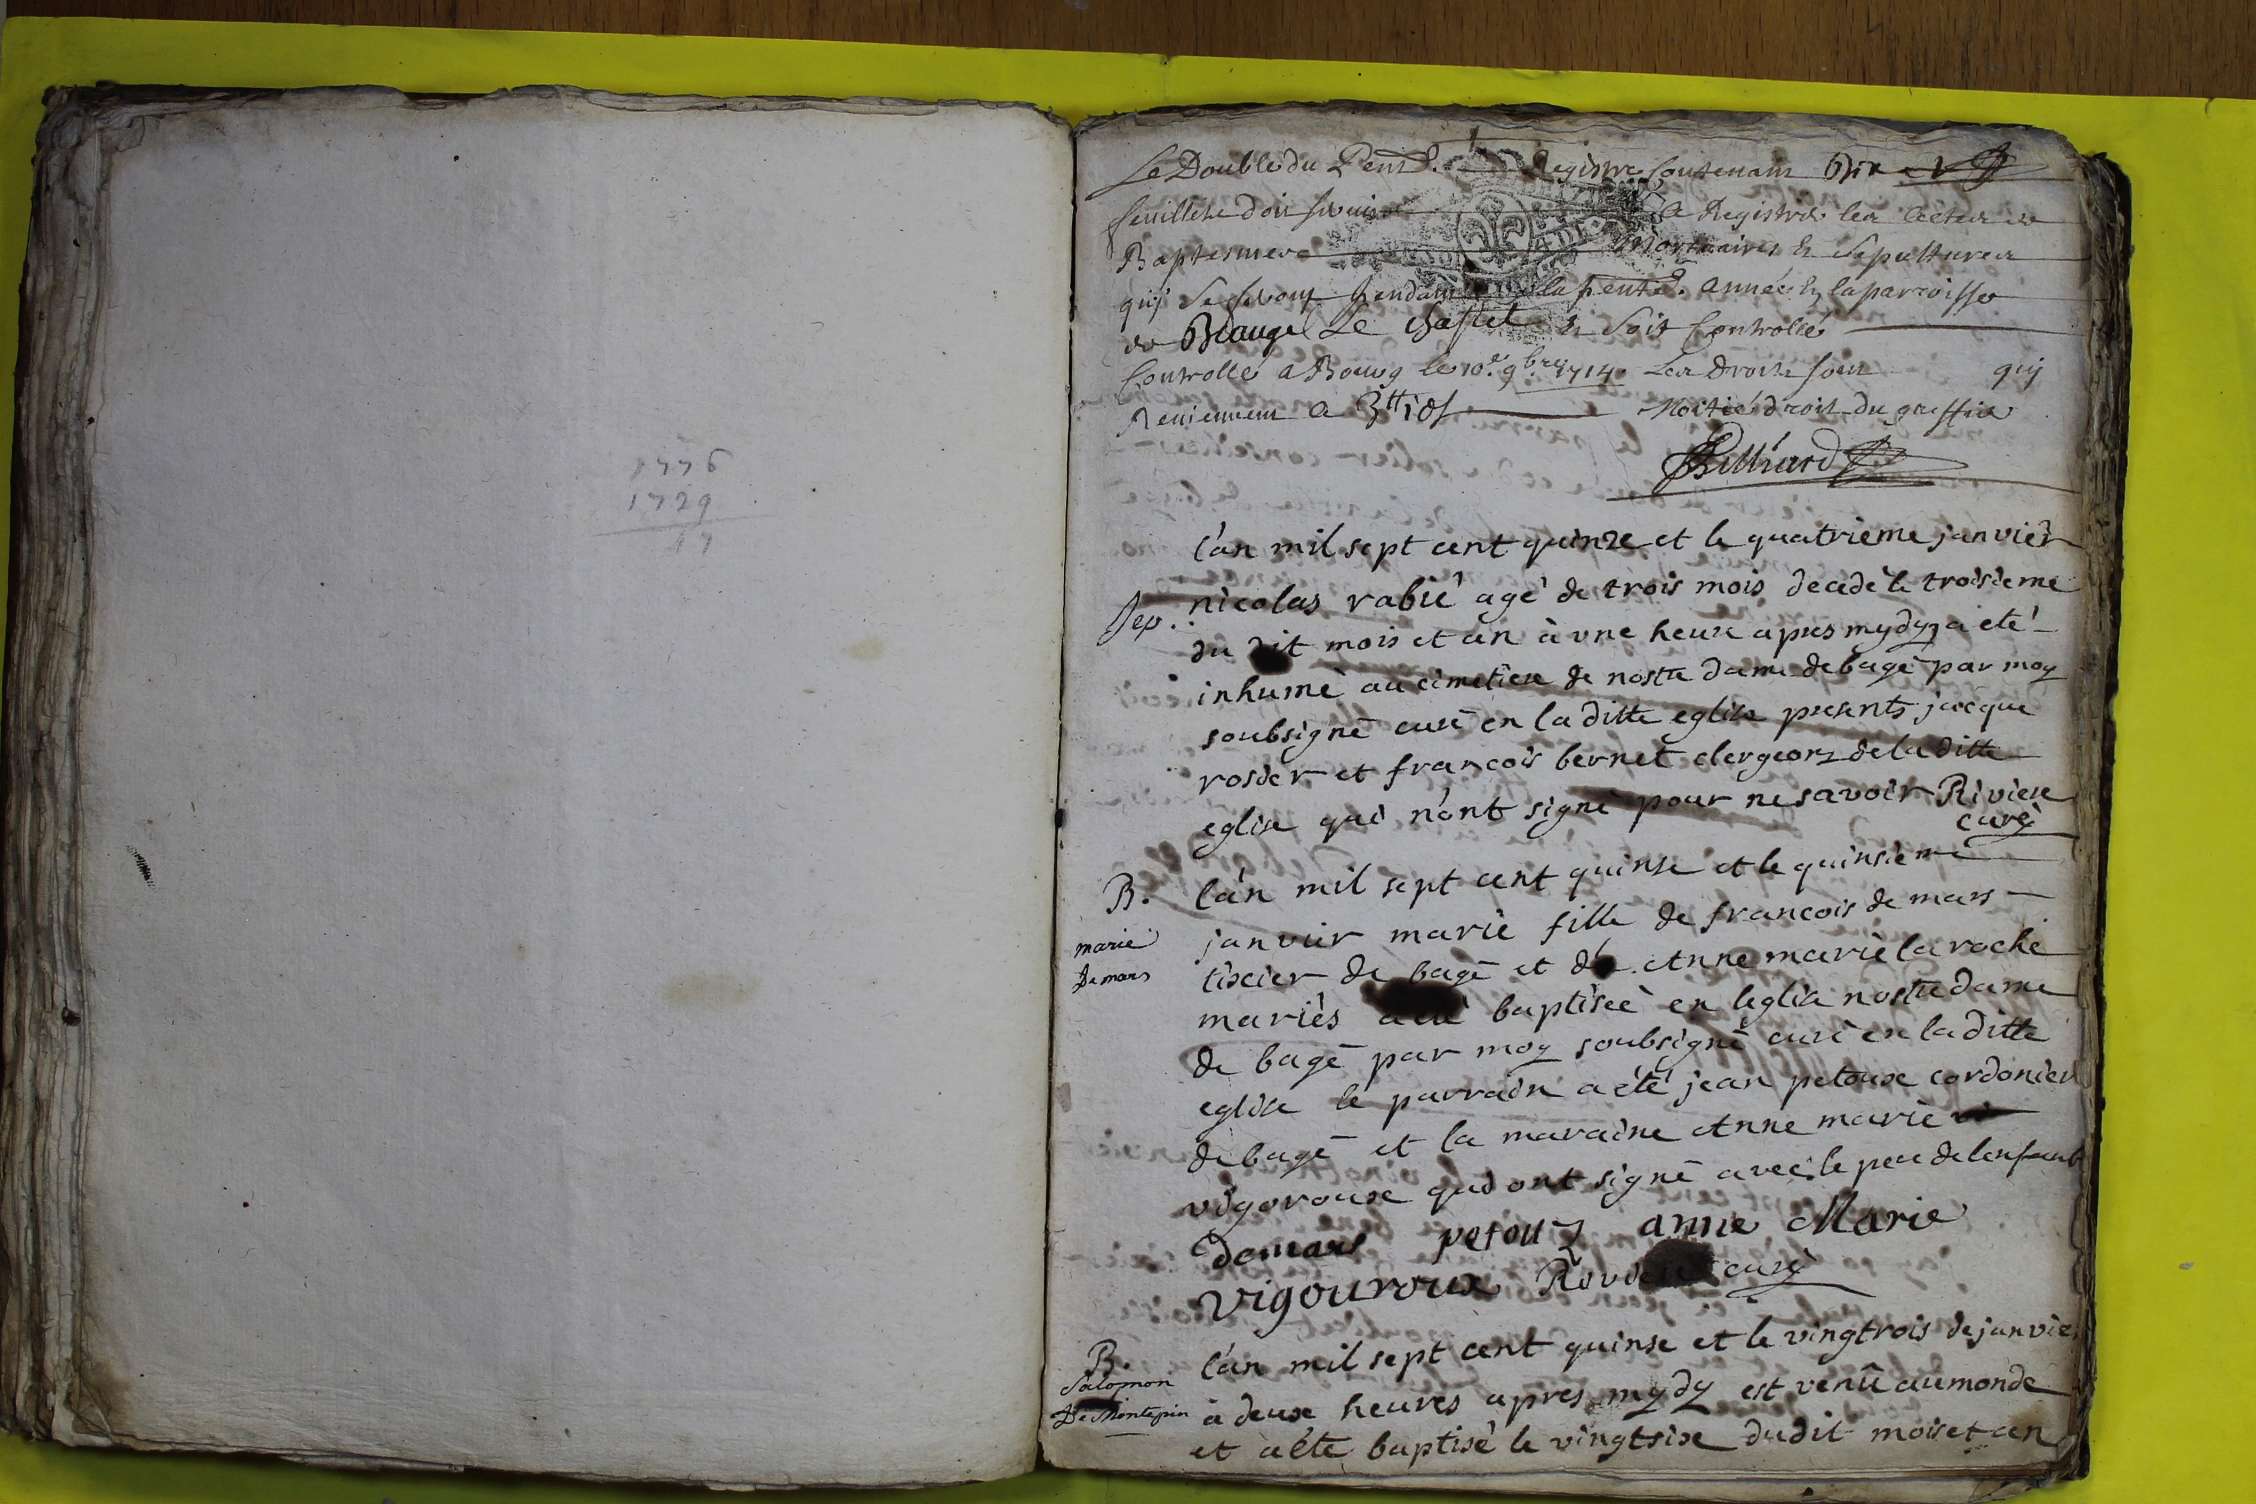 1776
1729
47
Le Double du Pent. Registre Contenant Dix
feuillets doit servir a Registrer les Actes de
Baptesmes Mortuaires & Sepultures
quy se feront pendant la pente. année En la parroisse
de Beaugé Le chastel & Soit Controllé
Controllé a Bourg le 10e. 9bre 1714. Les Droits sont quy
Reviennent a 3tt 10s Moitié droit du greffier
Billiard
l'an mil sept cent quinze et le quatrieme janvier
Sep. nicolas rabié agé de trois mois decedé le troisieme
du dit mois et an à vne heure apres mydy a eté
inhumé au cimetiere de nostre dame de bagé par moy
soubsigné curé en la ditte eglise presents jacque
rosier et francois bernet clergeon de la ditte
eglise qui n'ont signé pour ne savoir Riviere
curé
B. l'an mil sept cent quinse et le quinsieme
janvier marie fille de francois de mars
marie
Demars
tixier de bagé et de Anne marie la roche
mariés a eté baptiseé en leglise nostre dame
de bagé par moy soubsigné curé en la ditte
eglise le parrain a eté jean petoux cordonier
de bagé et la maraine Anne marie
vigoroux qui ont signé avec le pere de lenfant
demars petouz anne Marie
vigouroux Riviere curé
B. l'an mil sept cent quinse et le vingtrois de janvier
Salomon
De Montepin
à deux heures apres mydy est venû au monde
et a eté baptisé le vingtsix dudit mois et an